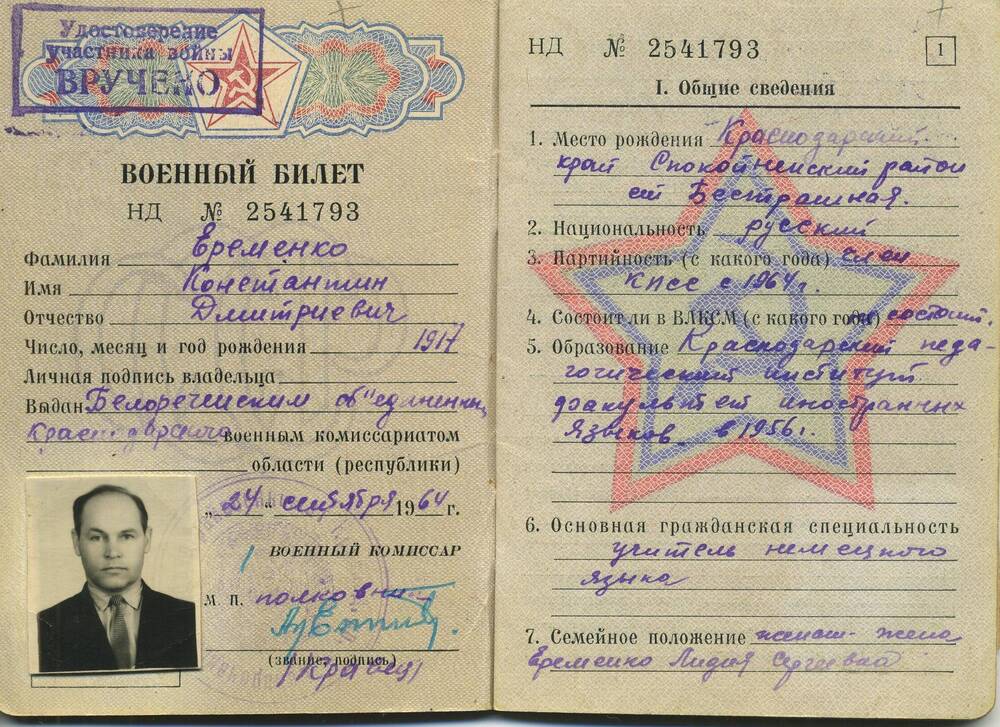 Удостоверение
участника войны
ВРУЧЕНО
ВОЕННЫЙ БИЛЕТ
НД № 2541793
Фамилия Еременко
Имя Константин
Отчество Дмитриевич
Число, месяц и год рождения 1917
Личная подпись владельца
Выдан Белореченским об"единенным
Краснодарского военным комиссариатом
области (республики)
„24" сентября 1964 г.
ВОЕННЫЙ КОМИССАР
М. П. полковник
(звание, подпись)
(Кравец)
НД № 2541793
1
I. Общие сведения
1. Место рождения Краснодарский
край Спокойненский район
ст Бесстрашная.
2. Национальность русский
3. Партийность (с какого года) член
КПСС с 1964 г.
4. Состоит ли в ВЛКСМ (с какого года) не состоит.
5. Образование Краснодарский педа-
гогический институт
факультет иностранных
языков в 1956 г.
6. Основная гражданская специальность
учитель немецкого
языка
7. Семейное положение женат - жена
Еременко Лидия Сергеевна